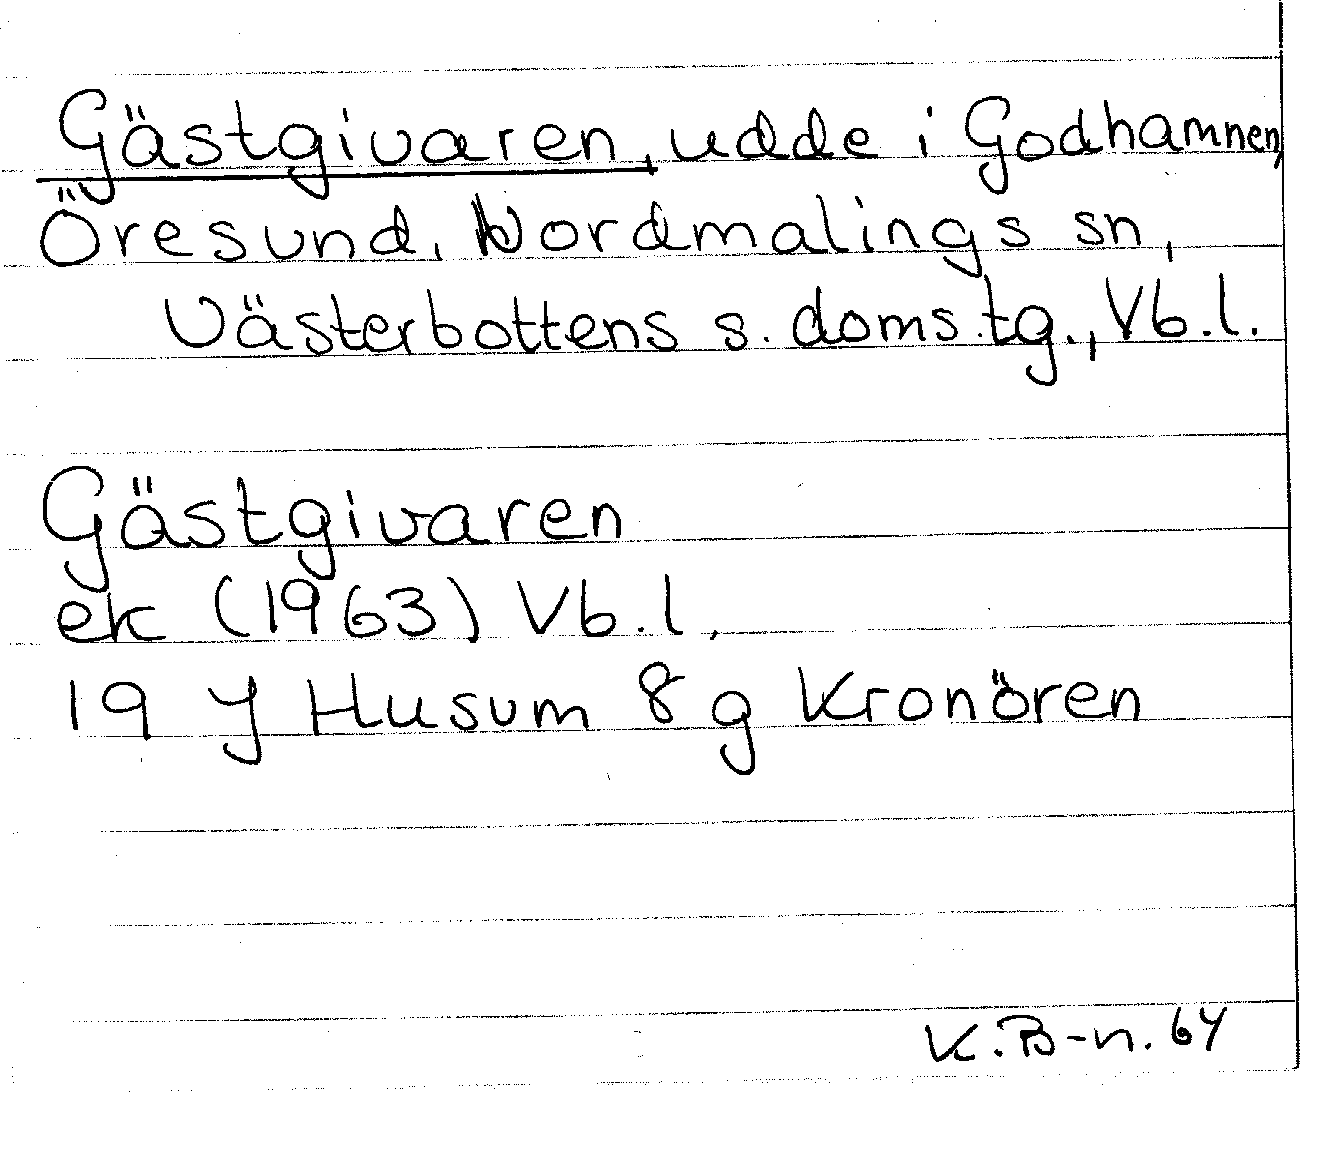 Gästgivaren, udde i Godhamnen,
Öresund, Nordmalings sn,
Västerbottens s. doms.tg., Vb.l.
Gästgivaren
ek (1963) Vb.l.
19 J Husum 8 g Kronören
K.B-n. 64